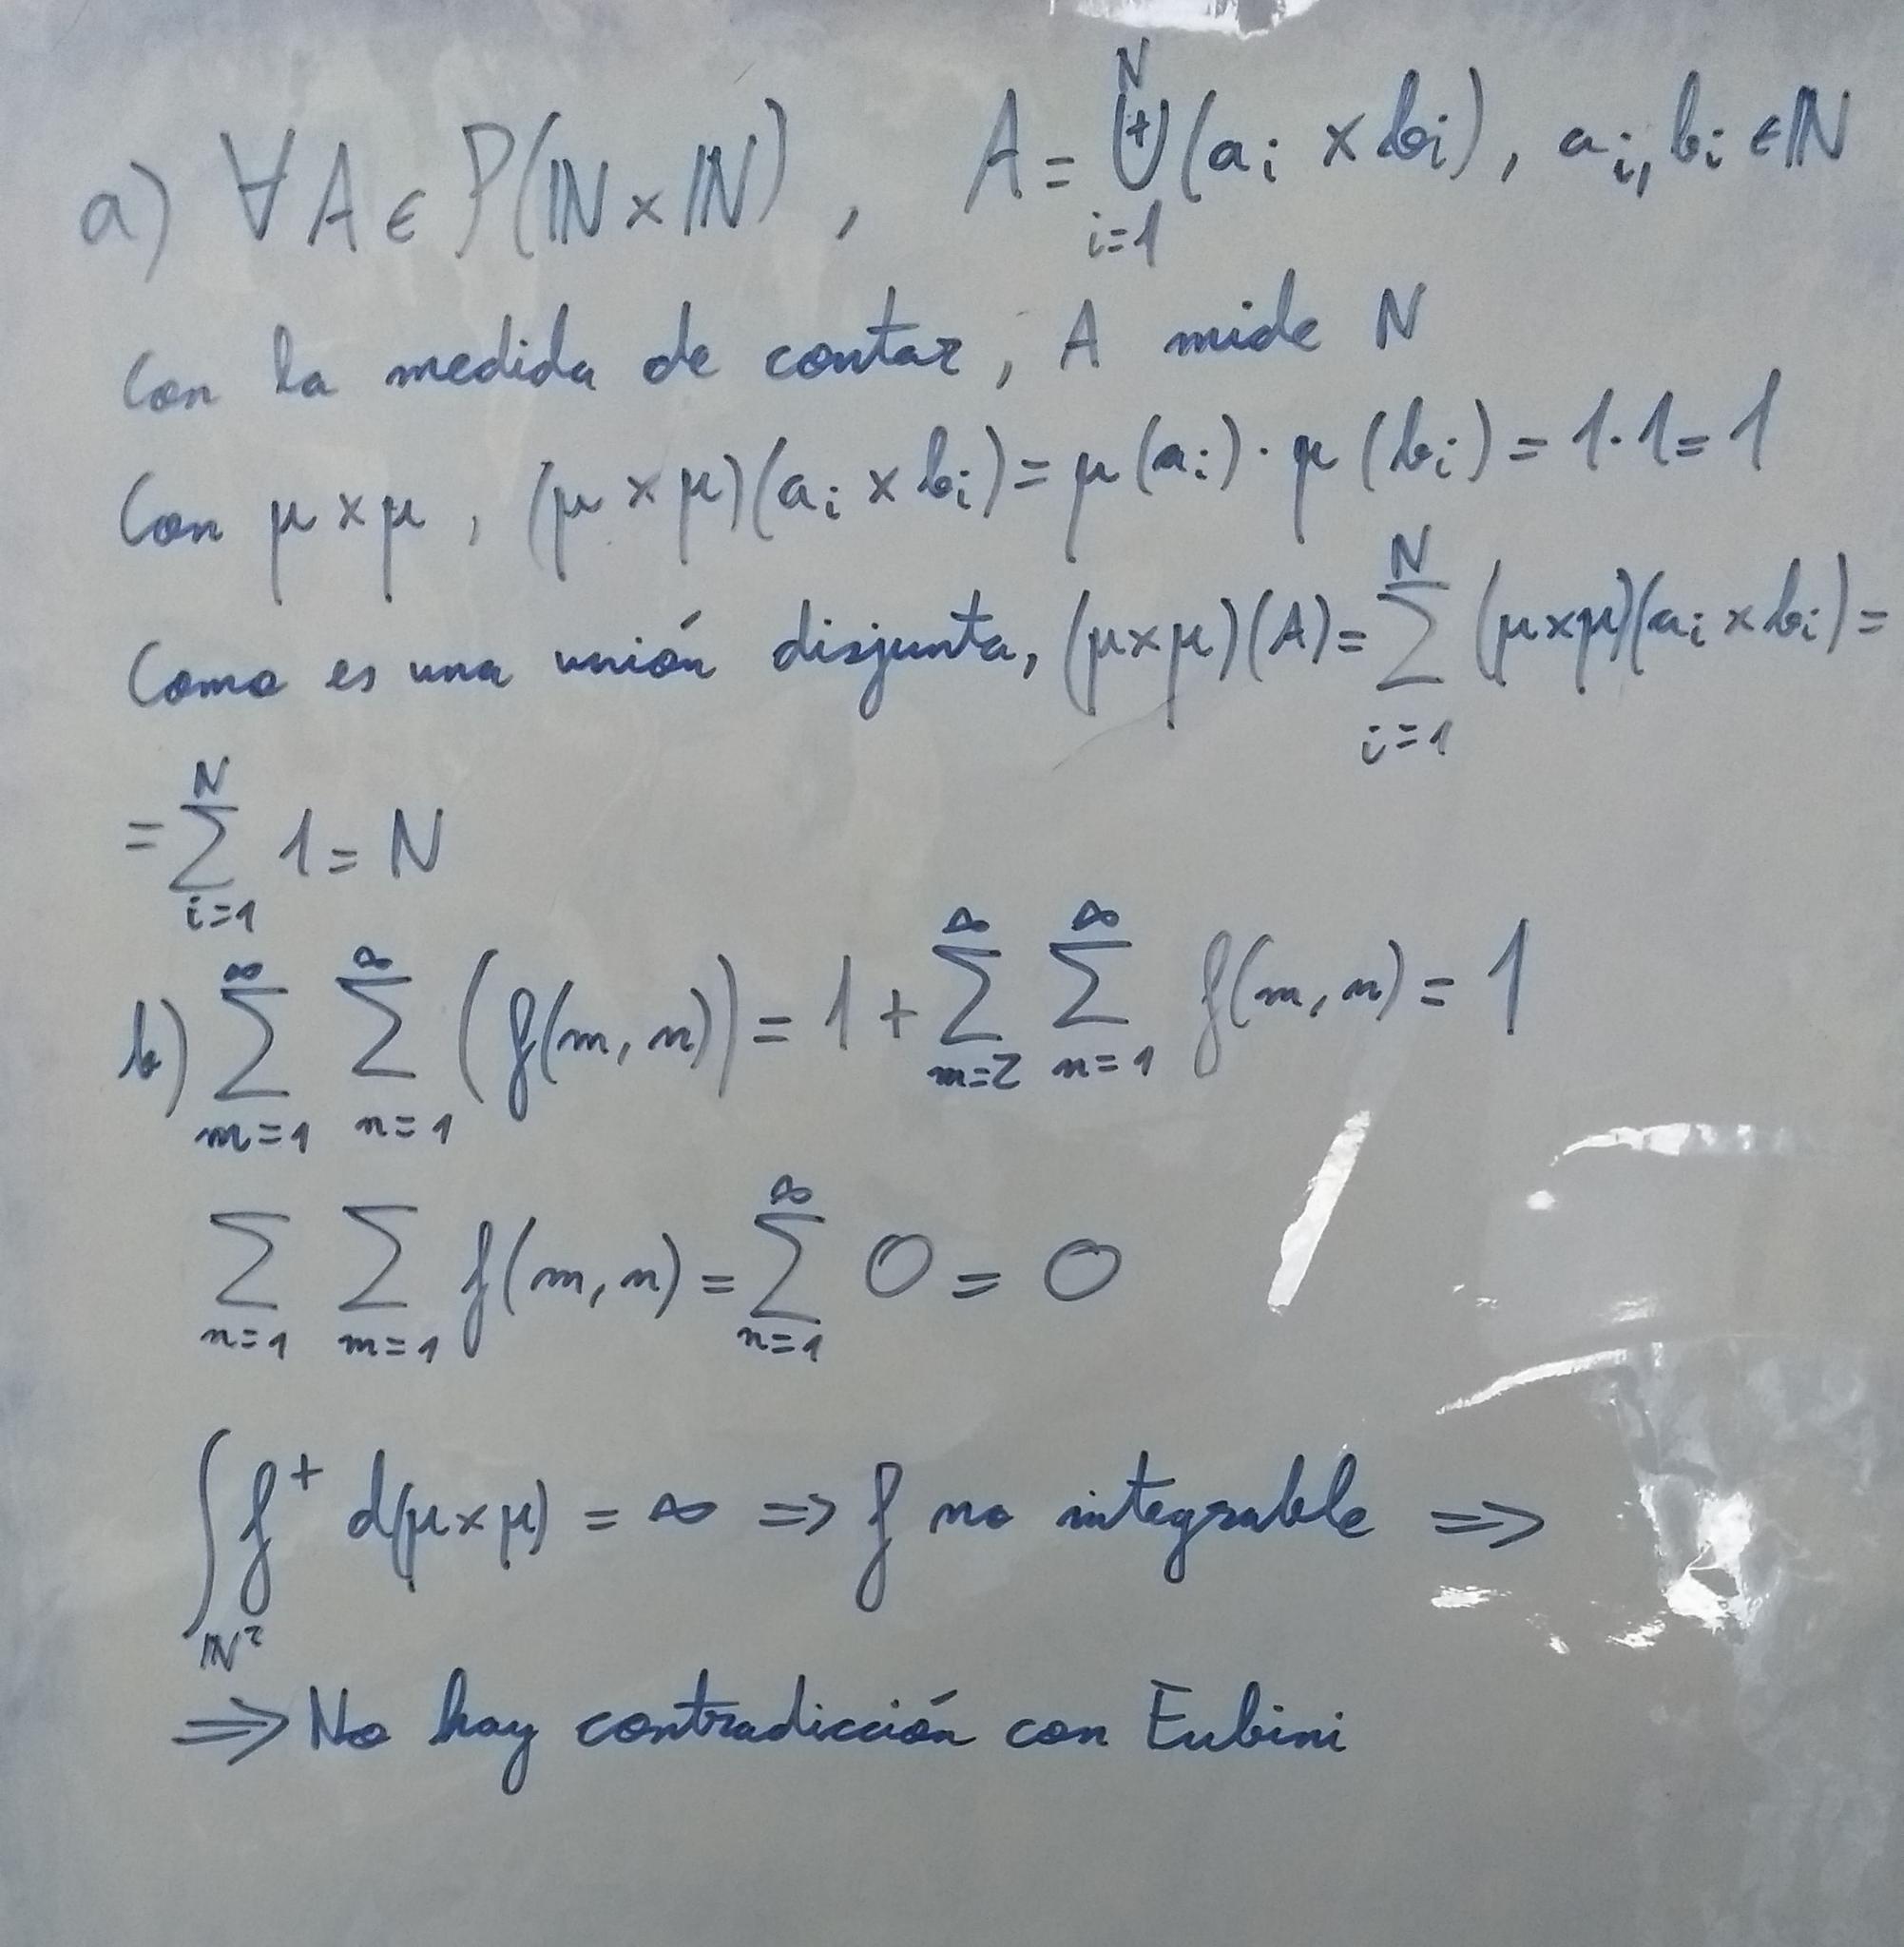 a) ∀ A ∈ P(ℕ × ℕ), A = ⨄_{i=1}^{N} (a_i × b_i), a_i, b_i ∈ ℕ
Con la medida de contar, A mide N
Con μ × μ, (μ × μ)(a_i × b_i) = μ(a_i) · μ(b_i) = 1·1 = 1
Como es una unión disjunta, (μ×μ)(A) = ∑_{i=1}^{N} (μ×μ)(a_i × b_i) =
= ∑_{i=1}^{N} 1 = N
b) ∑_{m=1}^{∞} ∑_{n=1}^{∞} (f(m, n)) = 1 + ∑_{m=2}^{∞} ∑_{n=1}^{∞} f(m, n) = 1
∑_{n=1} ∑_{m=1} f(m, n) = ∑_{n=1}^{∞} 0 = 0
∫_{ℕ²} f⁺ d(μ×μ) = ∞ => f no integrable =>
=> No hay contradicción con Fubini